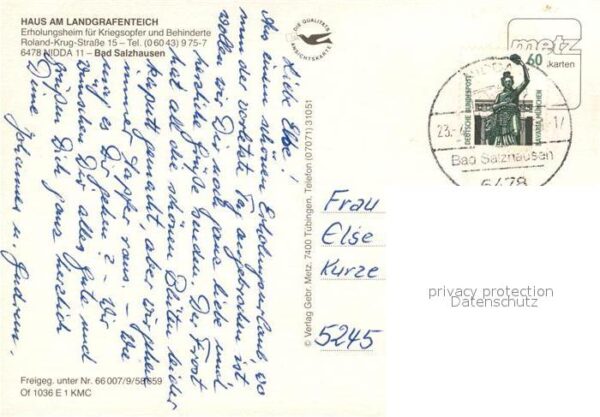 HAUS AM LANDGRAFENTEICH
Erholungsheim für Kriegsopfer und Behinderte
Roland-Krug-Straße 15 – Tel. (0 60 43) 9 75-7
6478 NIDDA 11 – Bad Salzhausen
Liebe Else!
Aus einem schönen Erholungsurlaub, wo
nun der vorletzte Tag angebrochen ist
wollen wir Dir noch ganz liebe und
herzliche Grüße senden. Der Frost
hat all die schönen Blüten leider
kaputt gemacht, aber wir gehen
immer tapfer raus. – Wie
mag es Dir gehen? – Wir
wünschen Dir alles Gute und
grüßen Dich ganz herzlich
Deine Johannes u. Gudrun.
Freigeg. unter Nr. 66 007/9/58 659
Of 1036 E 1 KMC
DIE QUALITÄTS
ANSICHTSKARTE
© Verlag Gebr. Metz, 7400 Tübingen, Telefon (07071) 31051
metz
karten
60
DEUTSCHE BUNDESPOST
BAVARIA MÜNCHEN
23.
Bad Salzhausen
6478
Frau
Else
Kurze
5245
privacy protection
Datenschutz